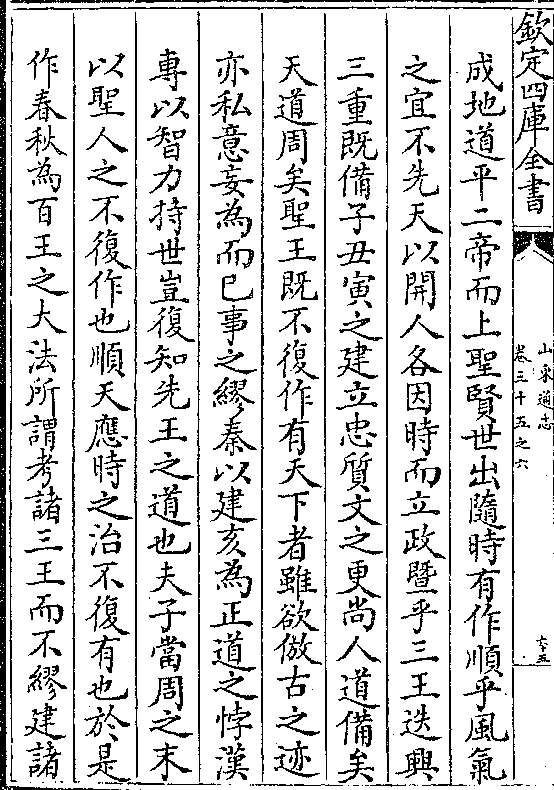 欽定四庫全書
山東通志
卷三十五之六
六十五
成地道平二帝而上聖賢世出隨時有作順乎風氣
之宜不先天以開人各因時而立政暨乎三王迭興
三重既備子丑寅之建立忠質文之更尚人道備矣
天道周矣聖王既不復作有天下者雖欲倣古之迹
亦私意妄為而已事之繆秦以建亥為正道之悖漢
專以智力持世豈復知先王之道也夫子當周之末
以聖人之不復作也順天應時之治不復有也於是
作春秋為百王之大法所謂考諸三王而不繆建諸